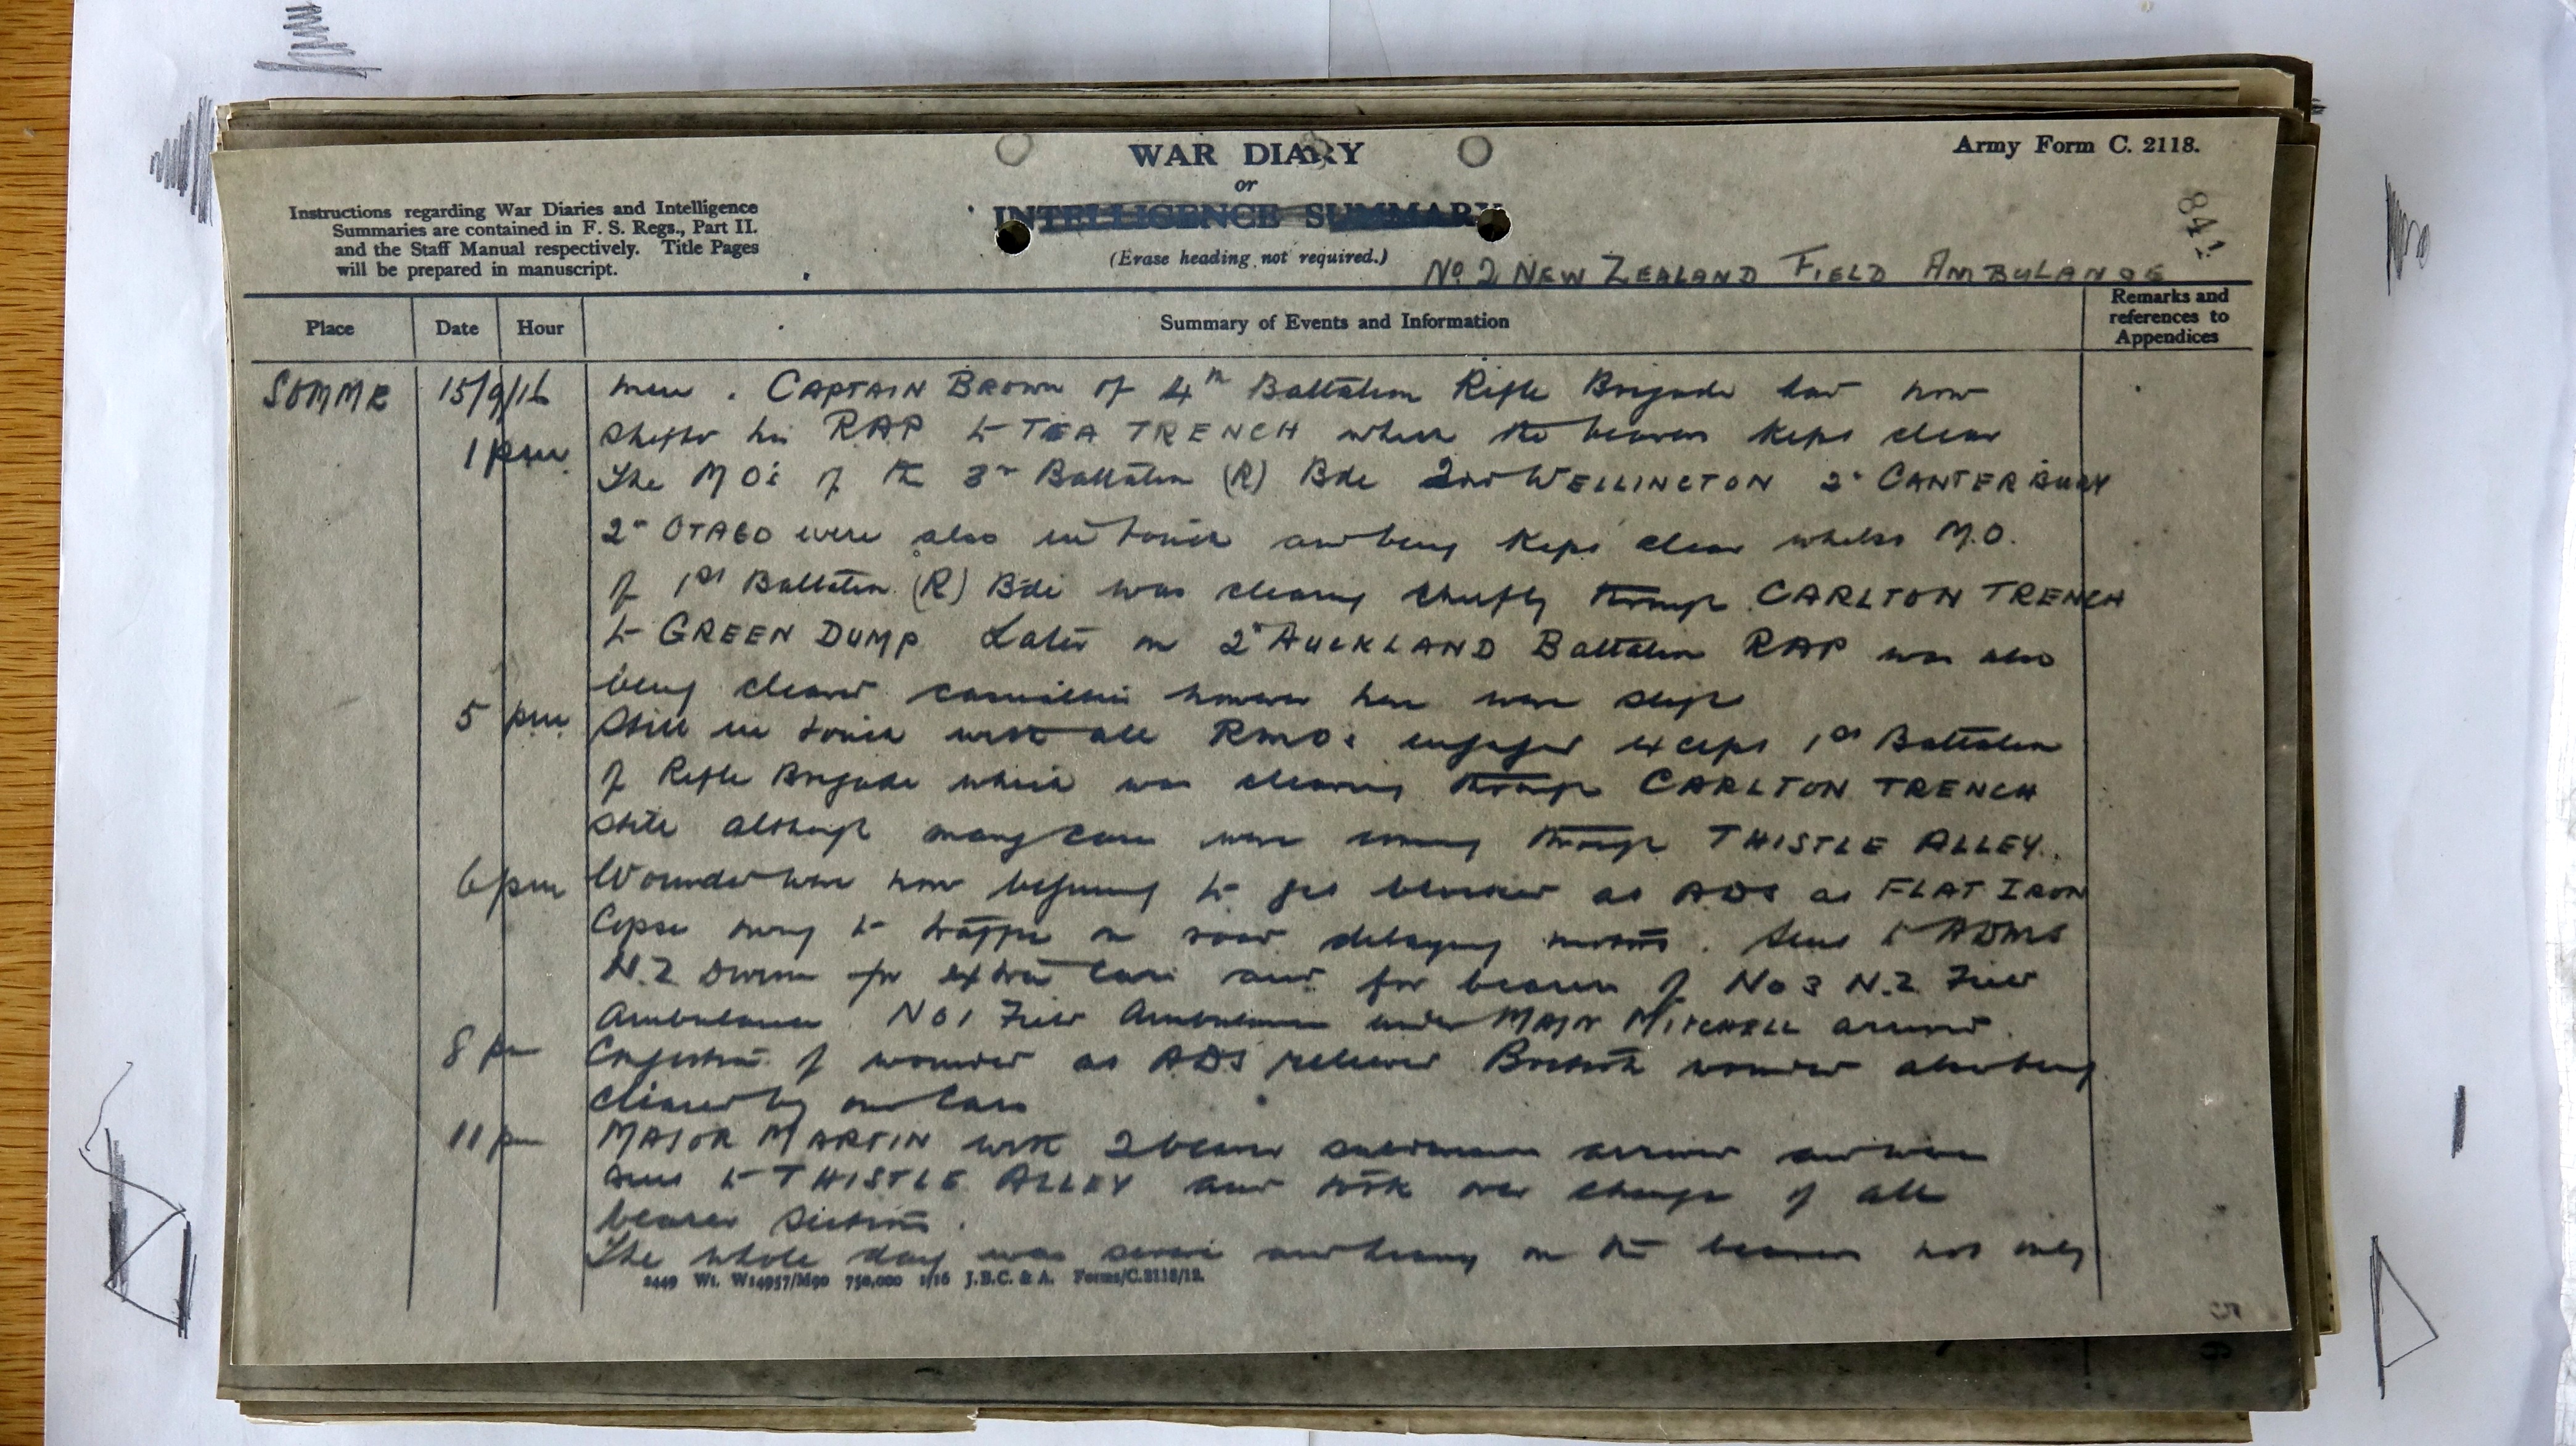 WAR DIARY
Army Form C. 2118.
or
INTELLIGENCE SUMMARY
841
Instructions regarding War Diaries and Intelligence
Summaries are contained in F. S. Regs., Part II.
and the Staff Manual respectively. Title Pages
will be prepared in manuscript.
(Erase heading not required.)
No 2 NEW ZEALAND FIELD AMBULANCE
Place
Date
Hour
Summary of Events and Information
Remarks and
references to
Appendices
SOMME 15/9/16 men. CAPTAIN BROWN of 4th Battalion Rifle Brigade had now
1 pm. his RAP to TEA TRENCH which the bearers kept clear
The MO's of the 3rd Battalion (R) Bde 2nd WELLINGTON 2nd CANTERBURY
2nd OTAGO were also in touch and being kept clear whilst M.O.
of 1st Battalion (R) Bde was clearing chiefly through CARLTON TRENCH
to GREEN DUMP Later on 2nd AUCKLAND Battalion RAP was also
being cleared casualties however here were slight
5 pm. Still in touch with all RMOs engaged except 1st Battalion
of Rifle Brigade which was clearing through CARLTON TRENCH
still although many cases were coming through THISTLE ALLEY.
6 pm Wounded were now beginning to get blocked at ADS at FLAT IRON
Copse owing to traffic on road delaying motors. Sent to ADMS
N.Z Division for extra cars and for bearers of No 3 N.Z Field
Ambulance. No 1 Field Ambulance under MAJOR MITCHELL arrived.
8 pm Congestion of wounded at ADS relieved British wounded also being
cleared by our cars
11 pm MAJOR MARTIN with 2 bearer subdivisions arrived and were
sent to THISTLE ALLEY and took over charge of all
bearer sections.
The whole day was severe and heavy on the bearers not only
2449 Wt. W14957/M90 750,000 1/16 J.B.C. & A. Forms/C.2118/12.